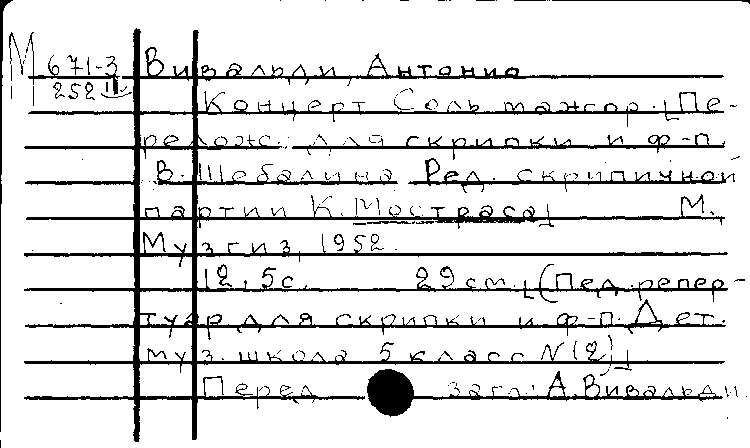 М 671-3 Вивальди, Антонио
252 Концерт Соль мажор. [Пе-
релож. для скрипки и ф-п.
В. Шебалина Ред. скрипичной
партии К. Мостраса] М.,
Музгиз, 1952.
12, 5 с. 29 см. [(Пед. репер-
туар для скрипки и ф-п. Дет.
муз. школа 5 класс N (2)]
Перед загл: А. Вивальди.